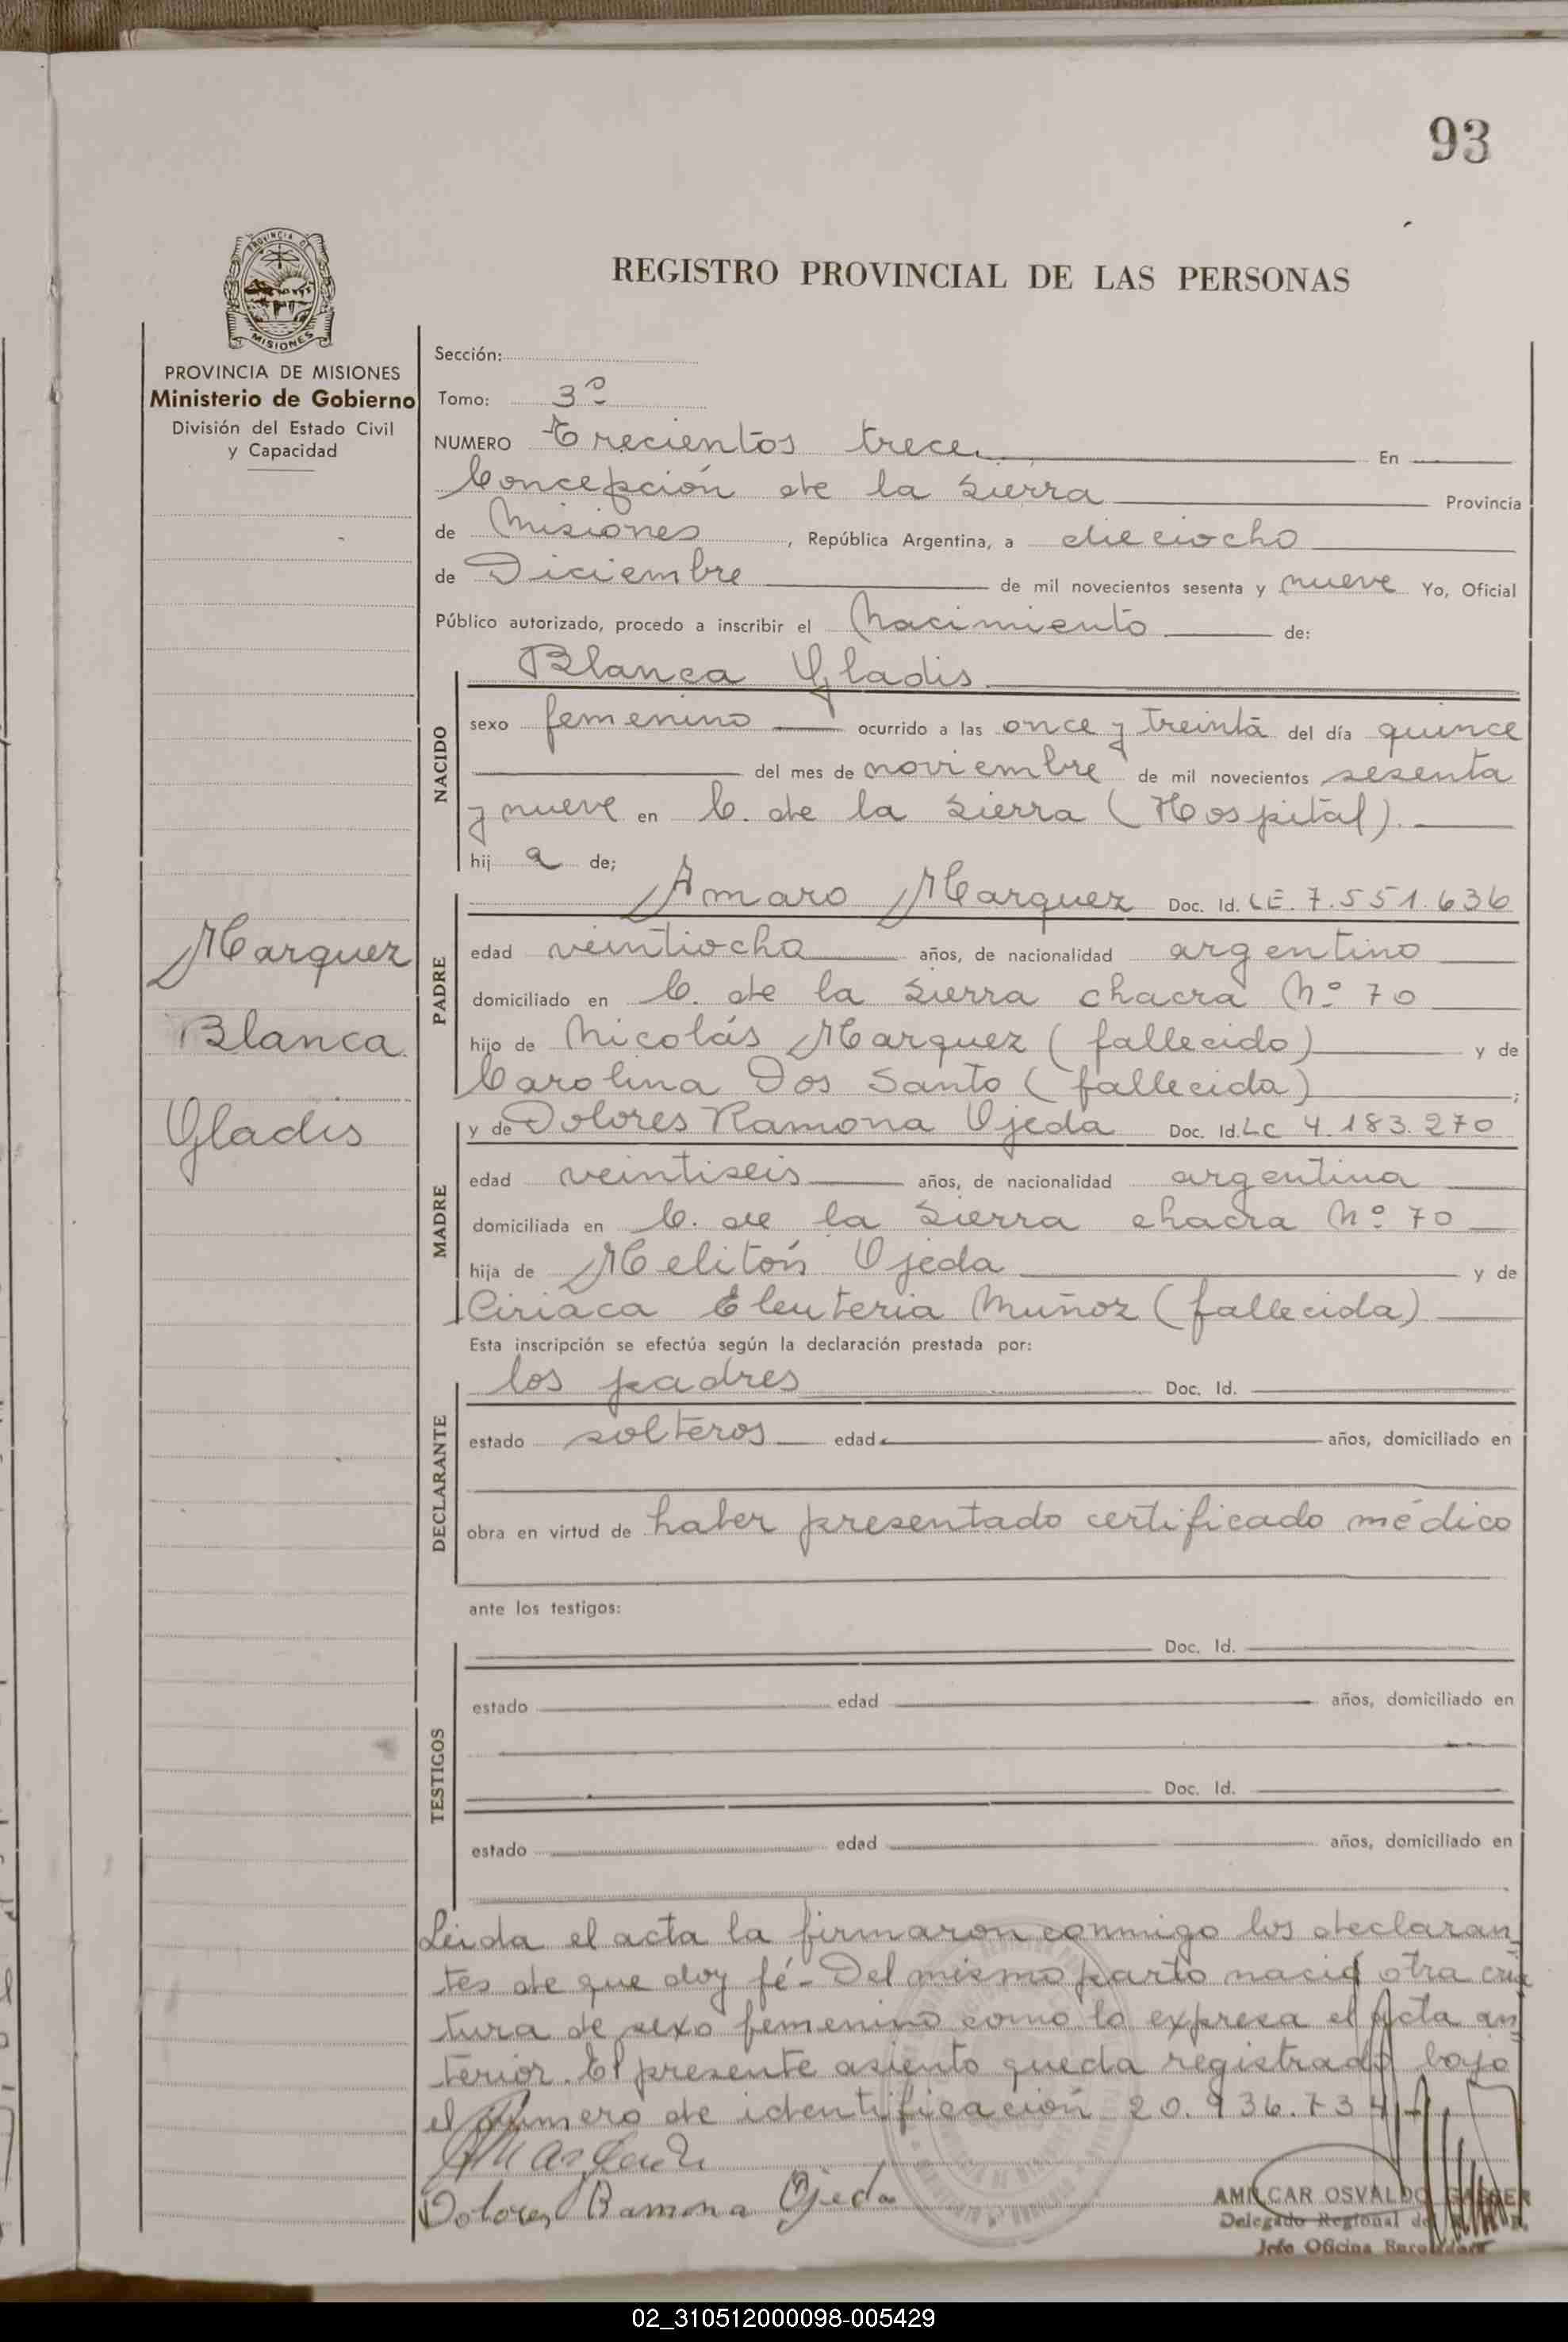 93
REGISTRO PROVINCIAL DE LAS PERSONAS
PROVINCIA DE MISIONES
Ministerio de Gobierno
División del Estado Civil
y Capacidad
Marquez
Blanca
Gladis
Sección:
Tomo: 3º
NUMERO Trecientos trece En
Concepción de la Sierra Provincia
de Misiones, República Argentina, a dieciocho
de Diciembre de mil novecientos sesenta y nueve Yo, Oficial
Público autorizado, procedo a inscribir el Nacimiento de:
NACIDO
Blanca Gladis
sexo femenino ocurrido a las once y treinta del día quince
del mes de noviembre de mil novecientos sesenta
y nueve en C. de la Sierra (Hospital).
hij a de;
PADRE
Amaro Marquez Doc. Id. LE. 7.551.636
edad veintiocho años, de nacionalidad argentino
domiciliado en C. de la Sierra chacra Nº 70
hijo de Nicolás Marquez (fallecido) y de
Carolina Dos Santo (fallecida);
MADRE
y de Dolores Ramona Ojeda Doc. Id. LC 4.183.270
edad veintiseis años, de nacionalidad argentina
domiciliada en C. de la Sierra chacra Nº 70
hija de Melitón Ojeda y de
Ciriaca Eleuteria Muñoz (fallecida)
Esta inscripción se efectúa según la declaración prestada por:
DECLARANTE
los padres Doc. Id.
estado solteros edad años, domiciliado en
obra en virtud de haber presentado certificado médico
ante los testigos:
TESTIGOS
Doc. Id.
estado edad años, domiciliado en
Doc. Id.
estado edad años, domiciliado en
Leida el acta la firmaron conmigo los declaran
tes de que doy fé- Del mismo parto nació otra cria
tura de sexo femenino como lo expresa el Acta an
terior. El presente asiento queda registrado bajo
el número de identificación 20.936.734
Dolores Ramona Ojeda
AMILCAR OSVALDO GASSER
Delegado Regional del
Jefe Oficina
02_310512000098-005429